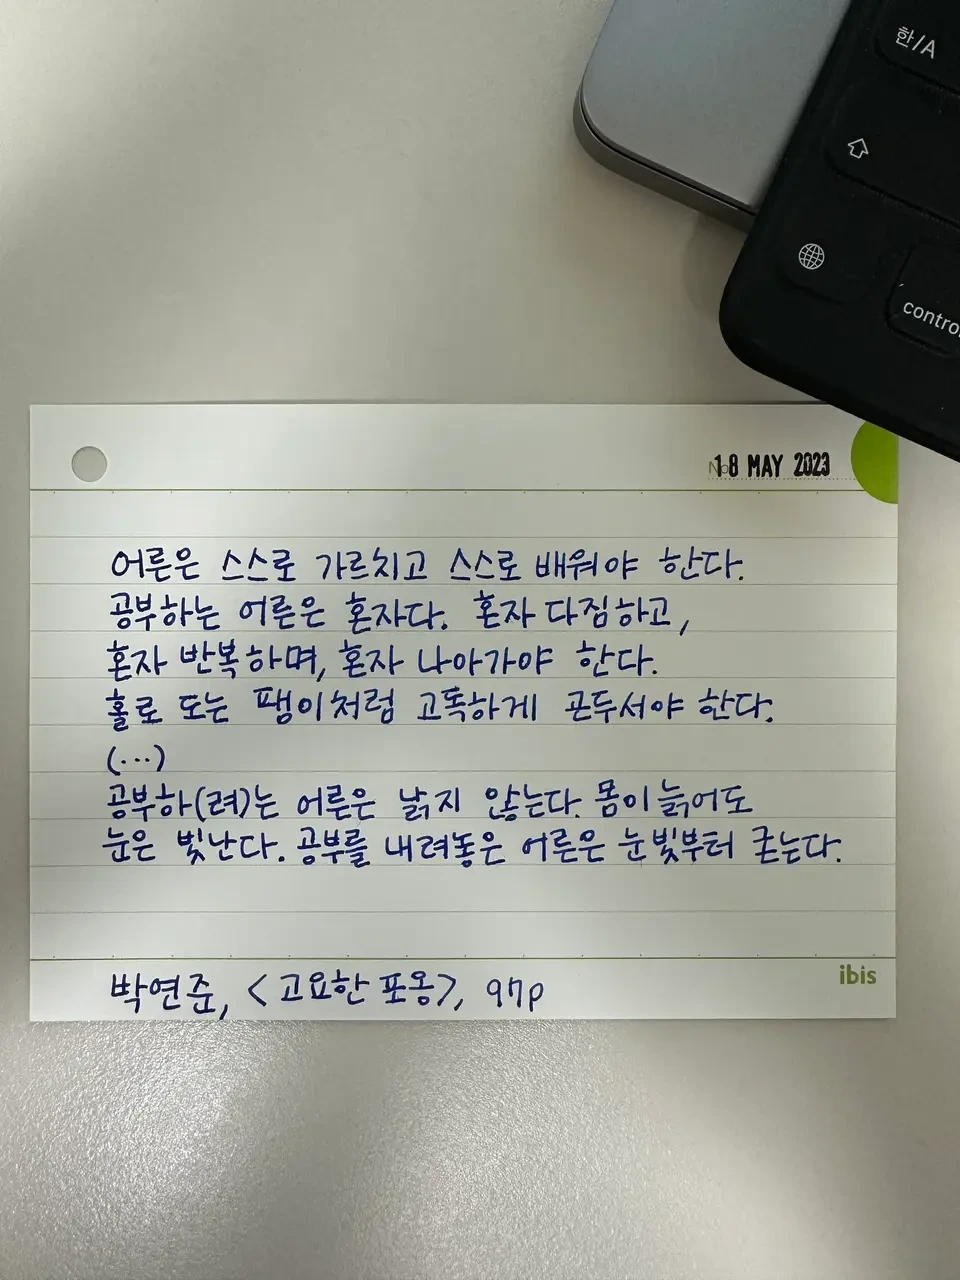 한/A
control
No 18 MAY 2023
어른은 스스로 가르치고 스스로 배워야 한다.
공부하는 어른은 혼자다. 혼자 다짐하고,
혼자 반복하며, 혼자 나아가야 한다.
홀로 도는 팽이처럼 고독하게 곤두서야 한다.
(...)
공부하(려)는 어른은 낡지 않는다. 몸이 늙어도
눈은 빛난다. 공부를 내려놓은 어른은 눈빛부터 굳는다.
ibis
박연준, <고요한 포옹>, 97p